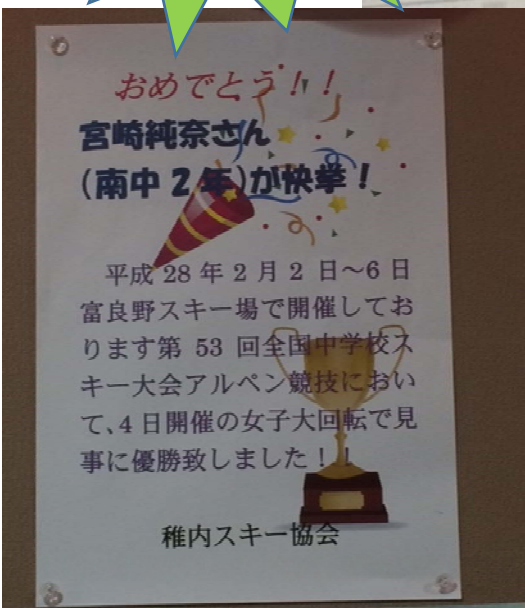 おめでとう！！
宮崎純奈さん
（南中２年）が快挙！
平成 28 年 2 月 2 日～6 日
富良野スキー場で開催してお
ります第 53 回全国中学校ス
キー大会アルペン競技におい
て、4 日開催の女子大回転で見
事に優勝致しました！！
稚内スキー協会